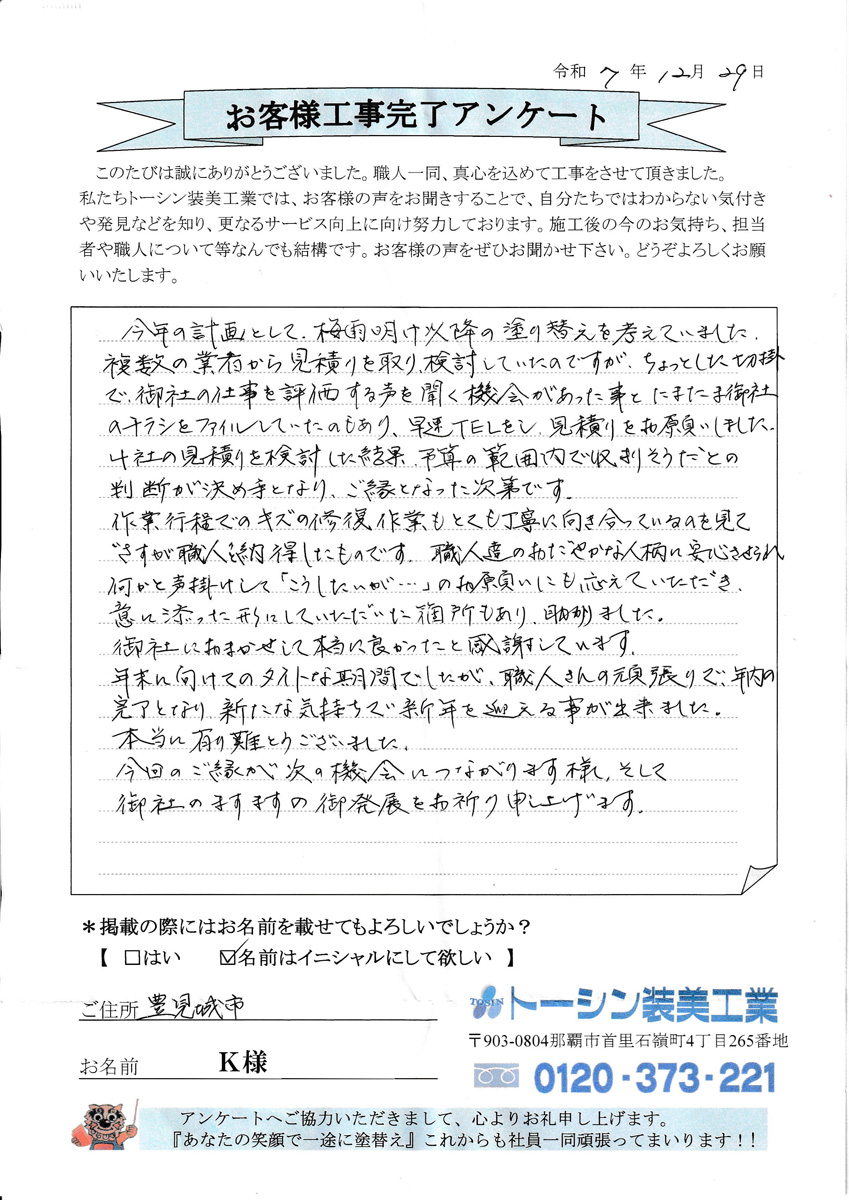 令和 7 年 12月 29日
お客様工事完了アンケート
このたびは誠にありがとうございました。職人一同、真心を込めて工事をさせて頂きました。
私たちトーシン装美工業では、お客様の声をお聞きすることで、自分たちではわからない気付き
や発見などを知り、更なるサービス向上に向け努力しております。施工後の今のお気持ち、担当
者や職人について等なんでも結構です。お客様の声をぜひお聞かせ下さい。どうぞよろしくお願
いいたします。
今年の計画として、梅雨明け以降の塗り替えを考えていました。
複数の業者から見積りを取り、検討していたのですが、ちょっとした切掛
で、御社の仕事を評価する声を聞く機会があった事と たまたま御社
のチラシをファイルしていたのもあり、早速TELをし、見積りをお願いしました。
4社の見積りを検討した結果、予算の範囲内で収まりそうだとの
判断が決め手となり、ご縁となった次第です。
作業行程でのキズの修復作業もとても丁寧に向き合っているのを見て
さすが職人と納得したものです。職人達のおだやかな人柄に安心させられ
何かと声掛けして「こうしたいが…」のお願いにも応えていただき、
意に添った形にしていただいた個所もあり、助かりました。
御社におまかせして本当に良かったと感謝しています。
年末に向けてのタイトな期間でしたが、職人さんの頑張りで、年内の
完了となり、新たな気持ちで新年を迎える事が出来ました。
本当に有り難とうございました。
今回のご縁が次の機会につながります様、そして
御社のますますの御発展をお祈り申し上げます。
＊掲載の際にはお名前を載せてもよろしいでしょうか？
【 □はい ☑名前はイニシャルにして欲しい 】
ご住所 豊見城市
お名前 K様
TOSIN トーシン装美工業
〒903-0804那覇市首里石嶺町4丁目265番地
0120-373-221
アンケートへご協力いただきまして、心よりお礼申し上げます。
『あなたの笑顔で一途に塗替え』これからも社員一同頑張ってまいります！！